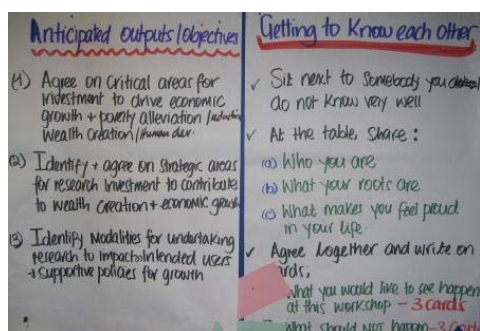 Anticipated outputs/objectives
(1) Agree on critical areas for
investment to drive economic
growth + poverty alleviation /
wealth creation/human dev.
(2) Identify + agree on strategic areas
for research investment to contribute
to wealth creation + economic growth
(3) Identify Modalities for undertaking
research to impact intended users
+ supportive policies for growth
Getting to Know each other
✓ Sit next to somebody you
do not know very well
✓ At the table, share :
(a) Who you are
(b) What your roots are
(c) What makes you feel proud
in your life.
✓ Agree together and write on
cards,
What you would like to see happen
at this workshop - 3 cards
What should NOT happen - 3 cards